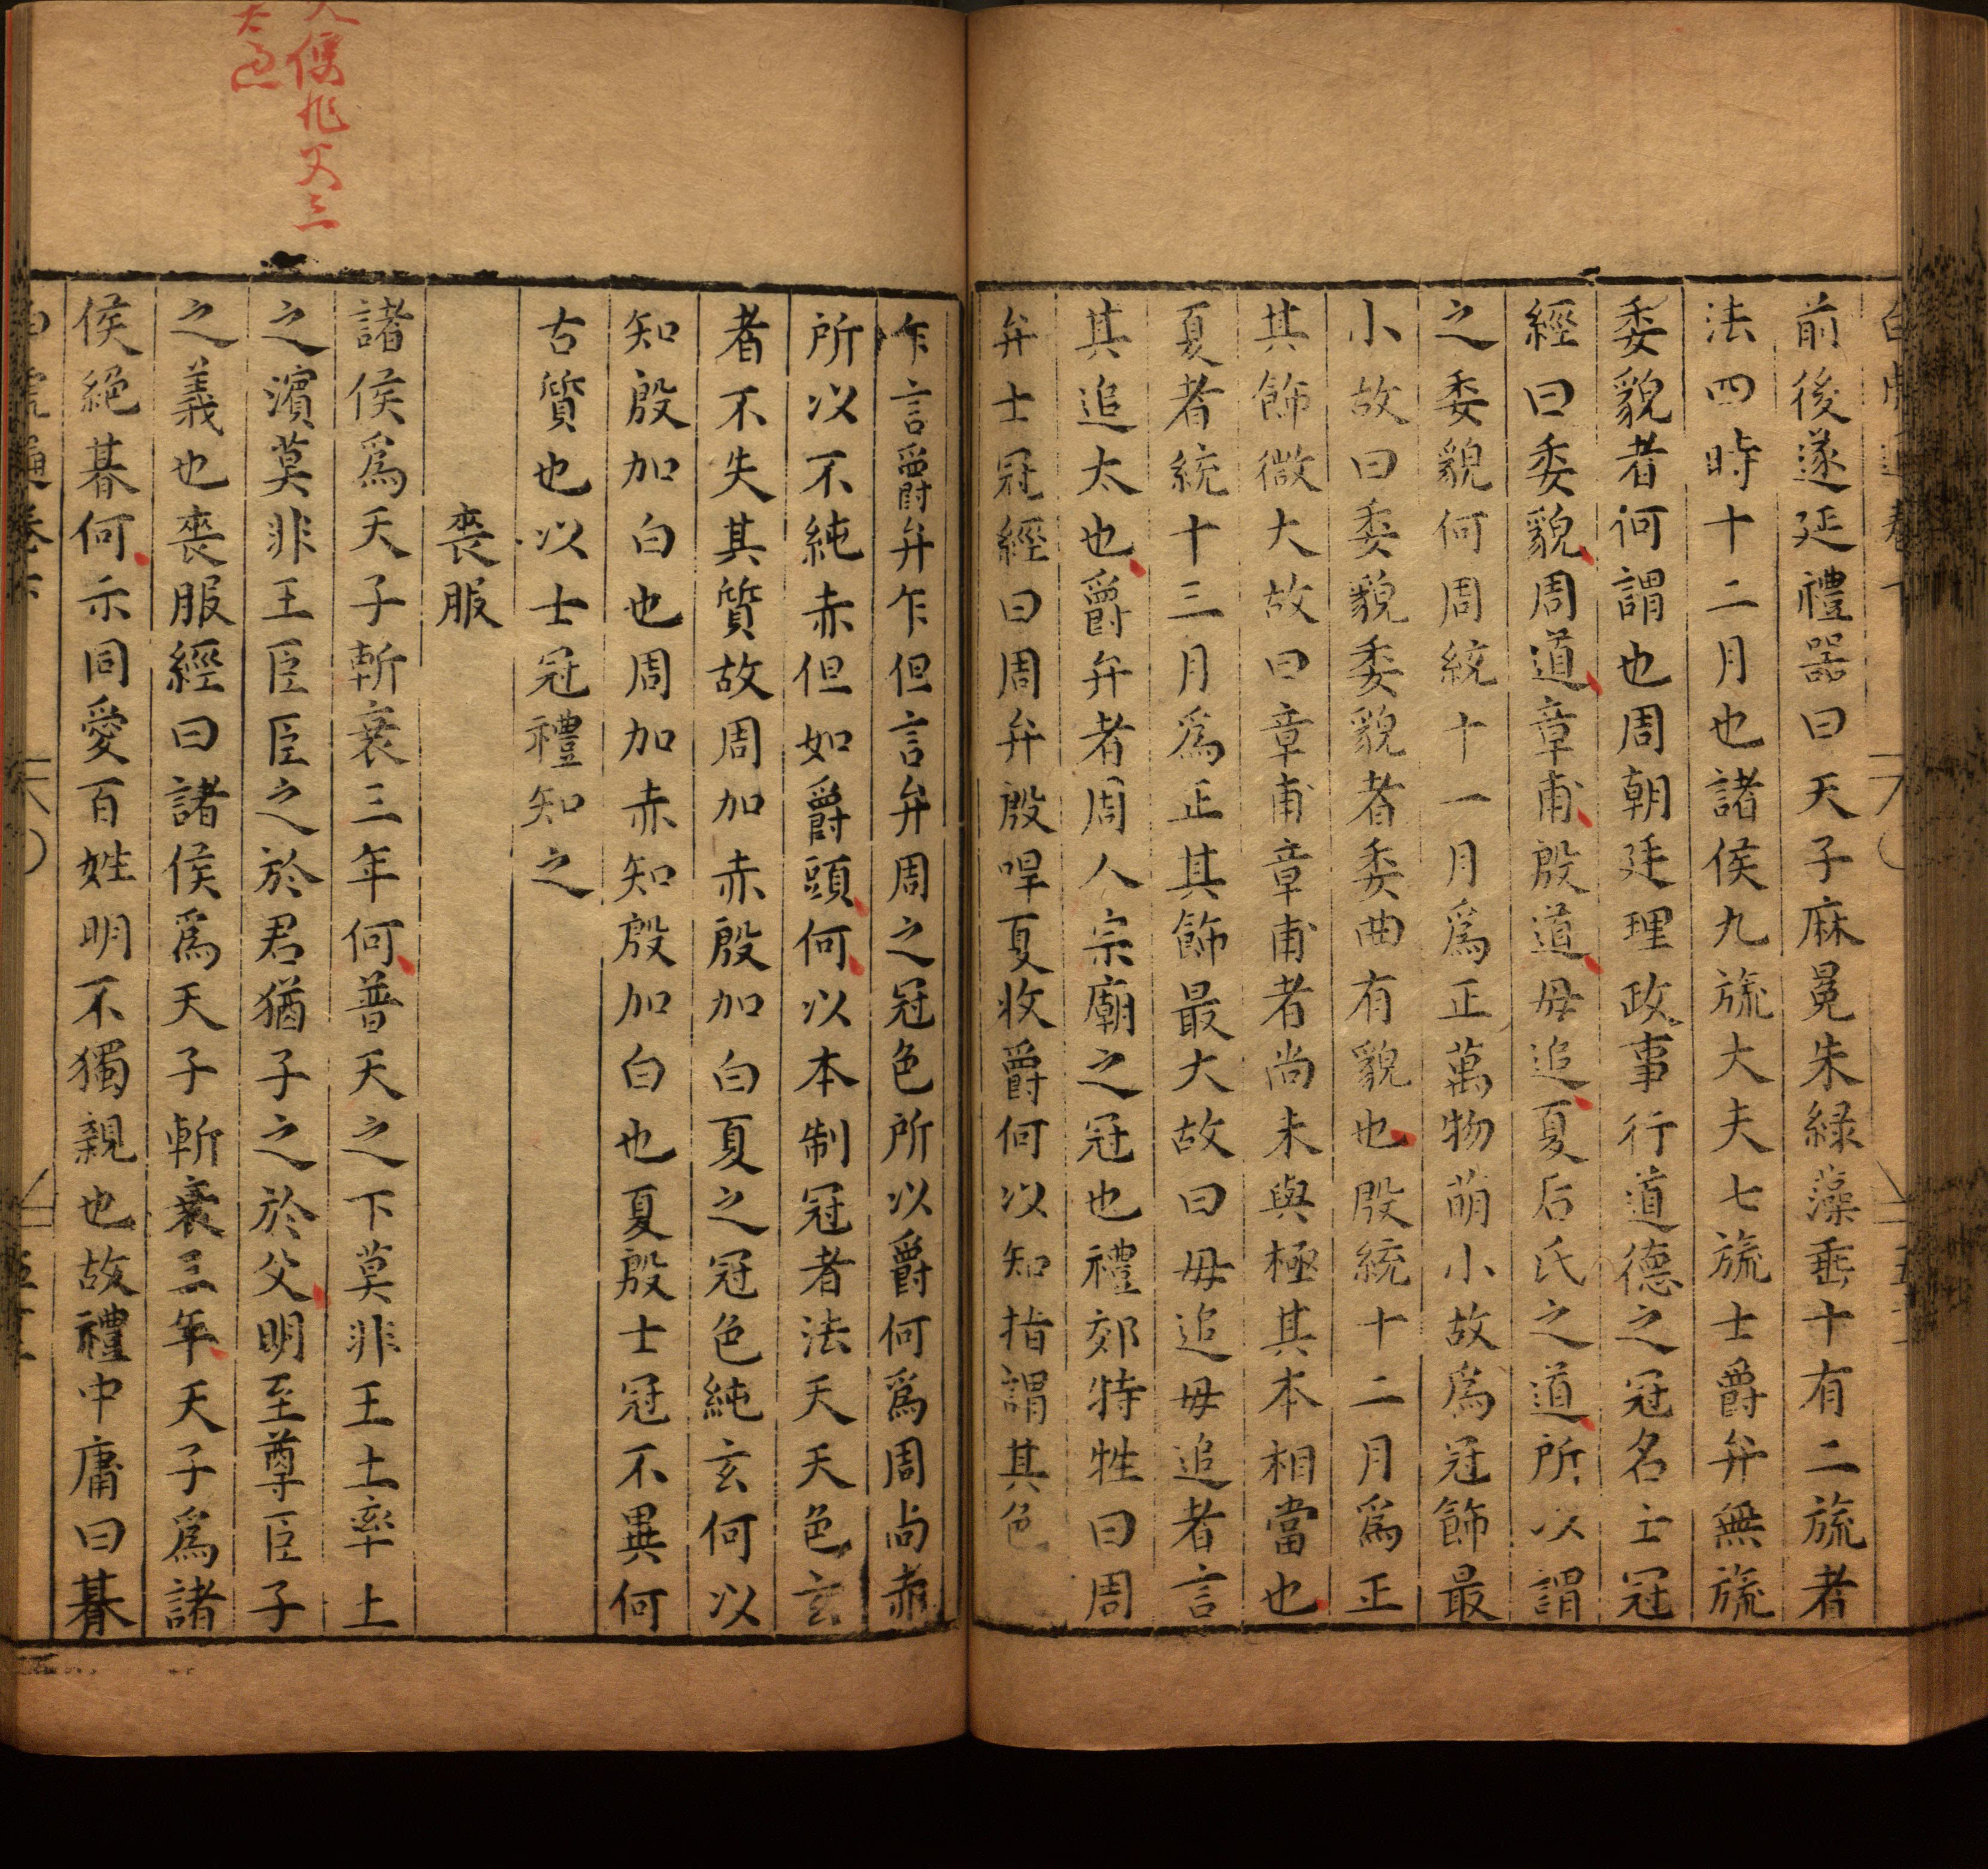 前後遂延禮器曰天子麻冕朱緑藻垂十有二旒者
法四時十二月也諸侯九旒大夫七旒士爵弁無旒
委貌者何謂也周朝廷理政事行道德之冠名士冠
經曰委貌周道章甫殷道毋追夏后氏之道所以謂
之委貌何周統十一月爲正萬物萌小故爲冠飾最
小故曰委貌委貌者委曲有貌也殷統十二月爲正
其飾微大故曰章甫章甫者尚未與極其本相當也
夏者統十三月爲正其飾最大故曰毋追毋追者言
其追太也爵弁者周人宗廟之冠也禮郊特牲曰周
弁士冠經曰周弁殷哻夏收爵何以知指謂其色
乍言爵弁乍但言弁周之冠色所以爵何爲周尚赤
所以不純赤但如爵頭何以本制冠者法天天色玄
者不失其質故周加赤殷加白夏之冠色純玄何以
知殷加白也周加赤知殷加白也夏殷士冠不異何
古質也以士冠禮知之
喪服
諸侯爲天子斬衰三年何普天之下莫非王土率上
之濱莫非王臣臣之於君猶子之於父明至尊臣子
之義也喪服經曰諸侯爲天子斬衰三年天子爲諸
侯絕朞何示同愛百姓明不獨親也故禮中庸曰朞